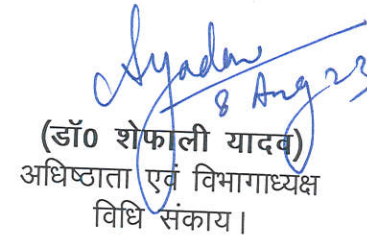 Syadav
8 Aug 23
(डॉ0 शेफाली यादव)
अधिष्ठाता एवं विभागाध्यक्ष
विधि संकाय।